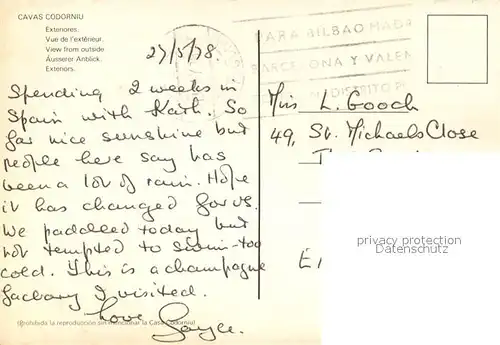 CAVAS CODORNIU
Exteriores.
Vue de l'extérieur.
View from outside
Äusserer Anblick.
Exteriors.
27/5/78.
Spending 2 weeks in
Spain with Kath. So
far nice sunshine but
people here say has
been a lot of rain. Hope
it has changed for us.
We paddled today but
not tempted to swim - too
cold. This is a champagne
factory I visited.
Love
Gayle.
(Prohibida la reproducción sin mencionar la Casa Codorniu)
PARA BILBAO MADR
BARCELONA Y VALEN
DISTRITO P
Miss L. Gooch
49, St. Michaels Close
privacy protection
ansichtskarten-center.de